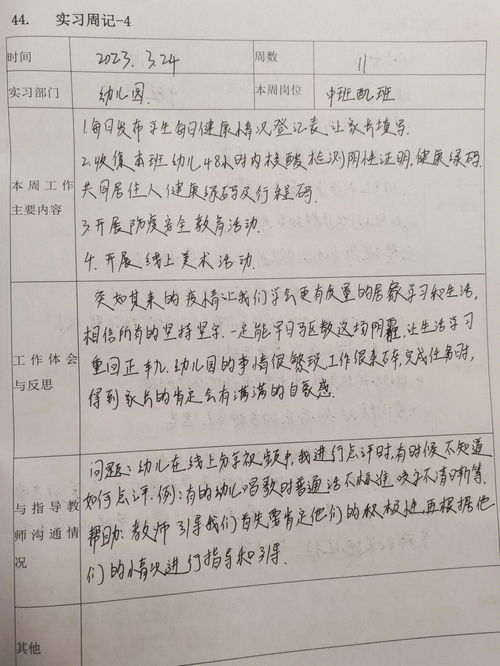 44. 实习周记-4
时间 2023.3.24 周数 11
实习部门 幼儿园. 本周岗位 中班配班
本周工作主要内容
1.每日发布学生每日健康情况登记表,让家长填写.
2.收集本班幼儿48小时内核酸检测阴性证明,健康绿码.
共同居住人健康绿码及行程码.
3.开展防疫安全教育活动.
4.开展线上美术活动.
工作体会与反思
突如其来的疫情让我们学会更有质量的居家学习和生活,
相信所有的坚持坚守.一定能早日驱散这场阴霾.让生活学习
重回正轨.幼儿园的事情很繁琐,工作很辛苦,完成任务时,
得到家长的肯定会有满满的自豪感.
与指导教师沟通情况
问题:幼儿在线上分享视频中,我进行点评时,有时候不知道
如何点评.例:有的幼儿唱歌时普通话不标准,咬字不清晰等.
帮助:教师引导我们首先要肯定他们的积极性,再根据他
们的情况进行指导和引导.
其他